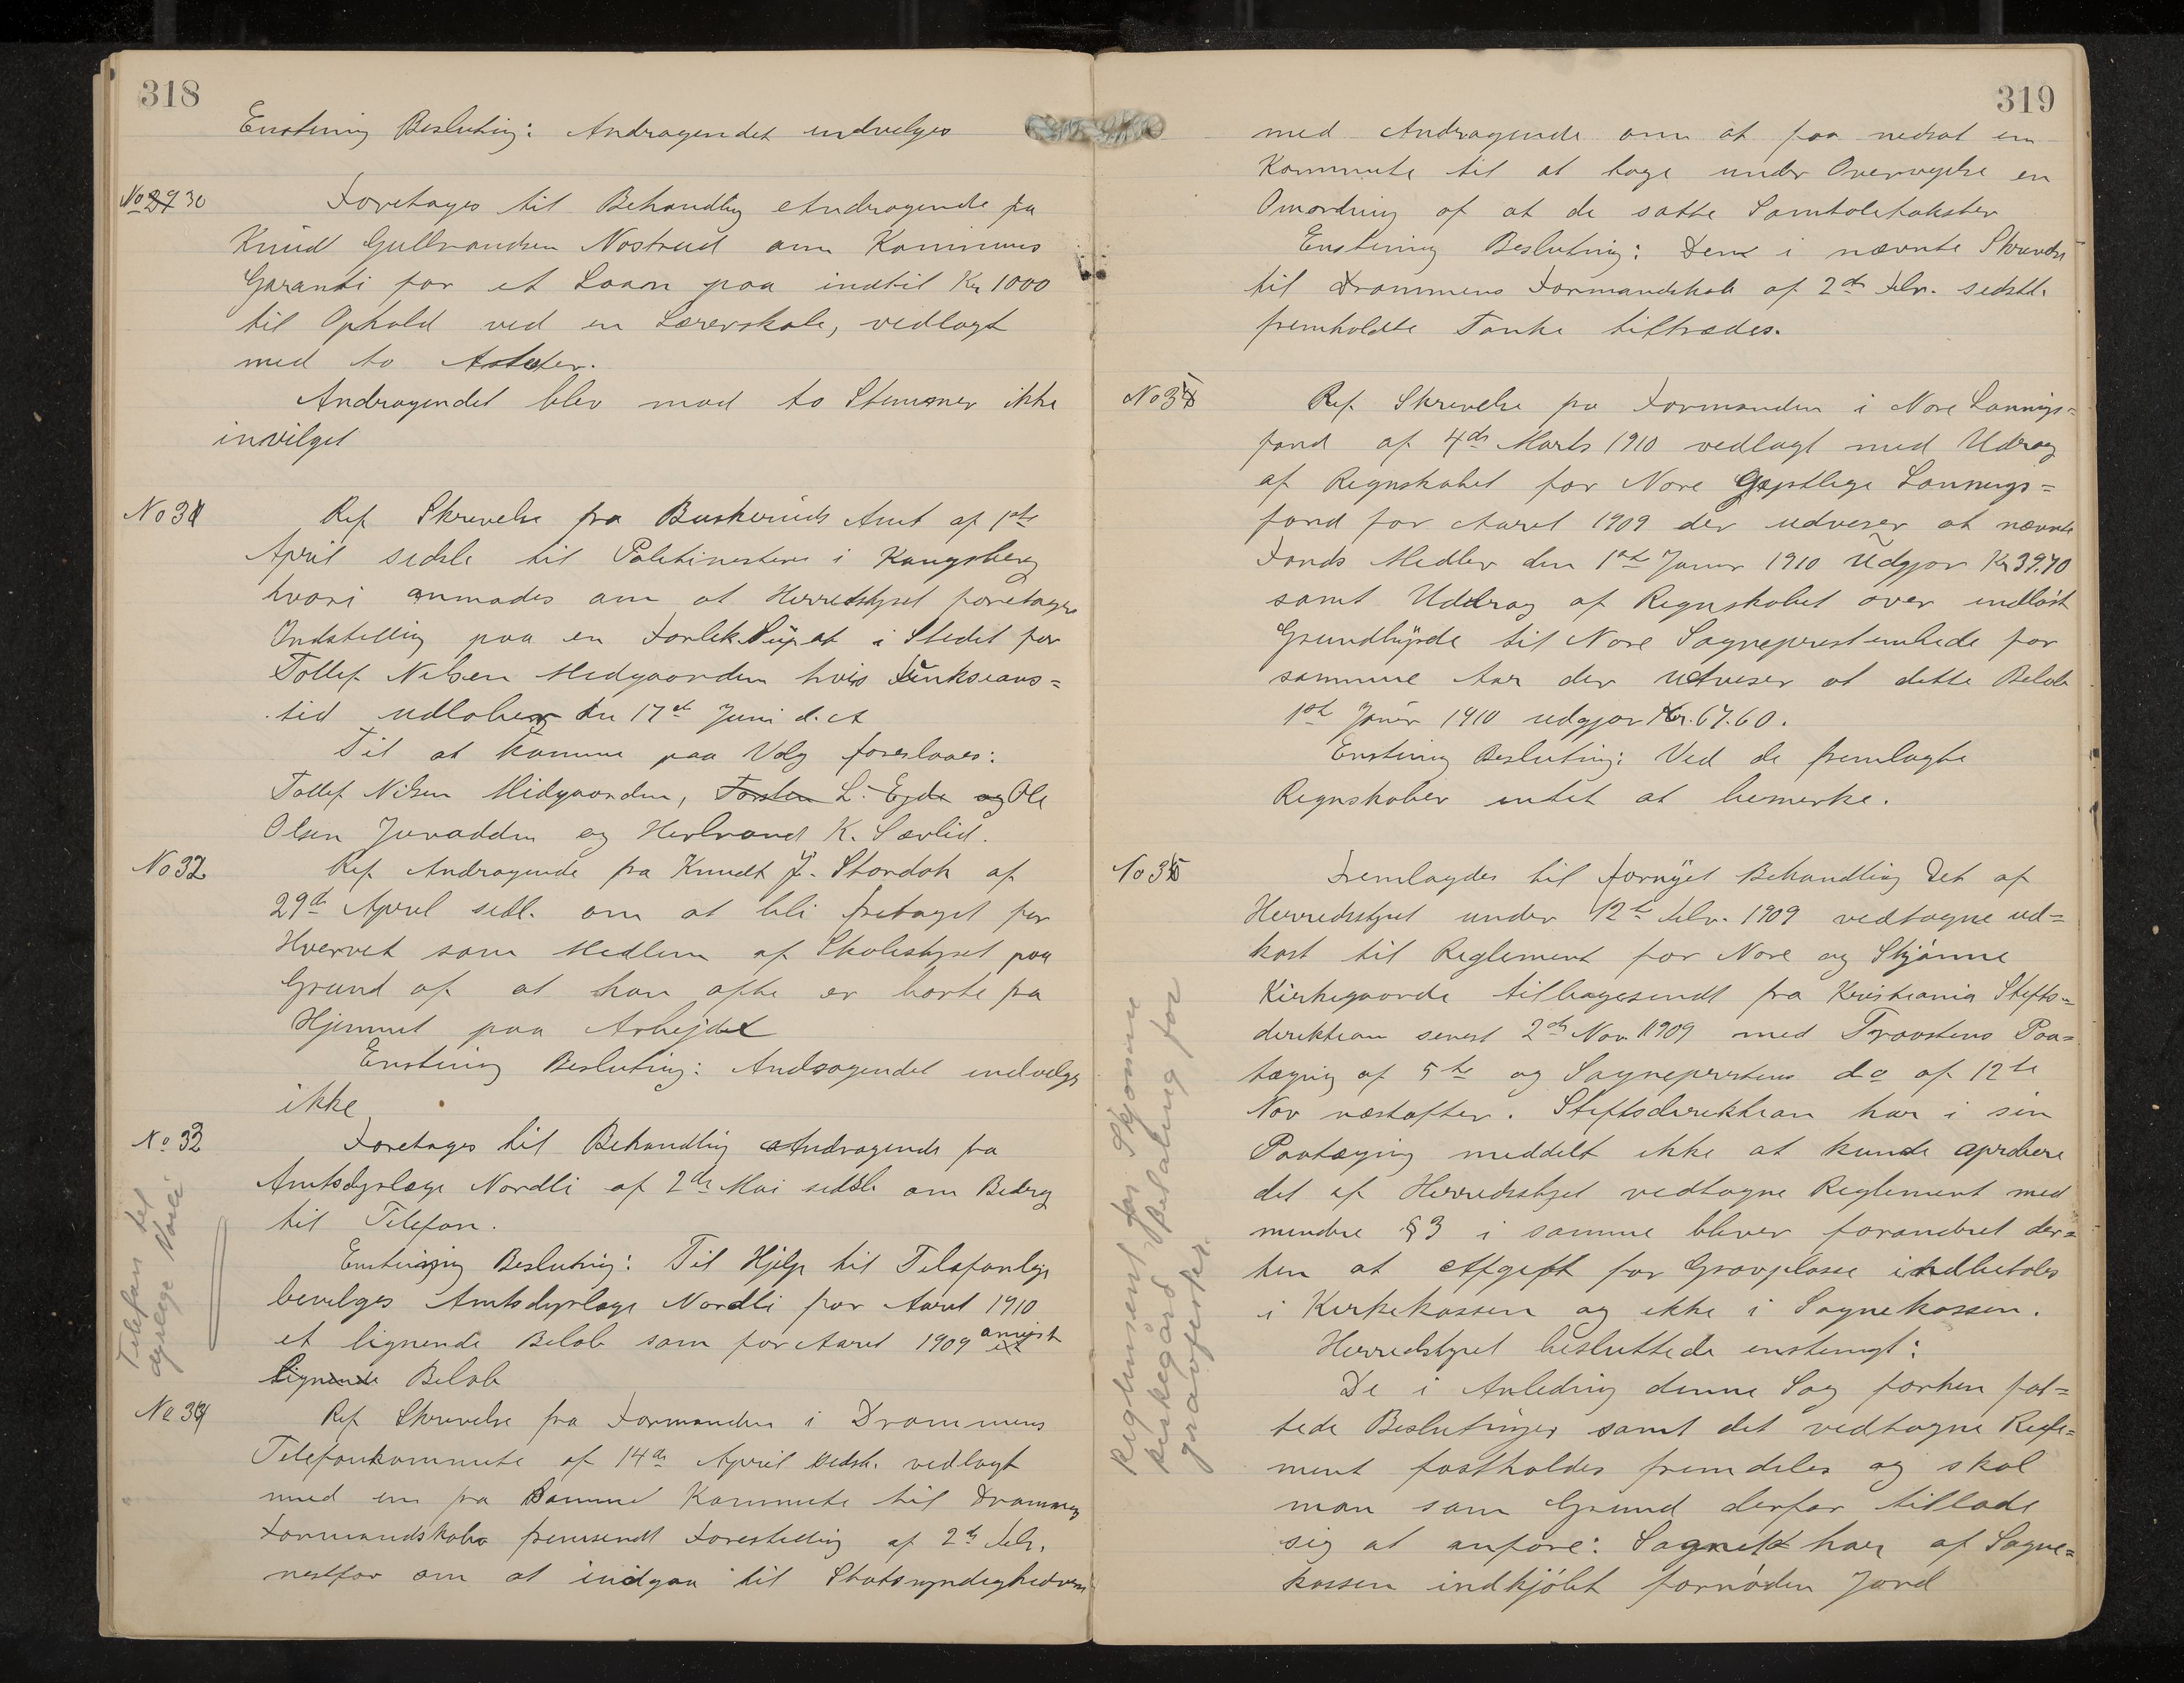 318
Enstemig Beslutnig: Andragendet indvelges
No 30
Foretages til Behandlig Andragende fra
Knudt Gulbrandsen Nostrud om Kommuns
Garanti for et Laan paa indtil Kr 1000
til Ophold ved en Lærerskole, vedlagt
med to Attester.
Andragendet blev mod to Stemmer ikke
invilget
No 31
Ref Skrevelse fra Buskeruds Amt af 1ste
April sidstl. til Politimesteren i Kongsberg
hvori anmodes om at Herredstyret foretager
Indstellig paa en Forlik. Supt. i Stedet for
Tollef Nilsen Midgaarden hvis Funksions=
tid udløber den 17de Juni d. A
Til at komme paa Valg foreslaaes:
Tollef Nilsen Midgaarden, Torsten L. Egde og Ole
Olsen Juvadden og Herbrand K. Sævlid.
No 32
Ref Andragende fra Knudt J. Stordok af
29de April sidl. om at bli fretaget for
Hvervet som Medlem af Skolestyret paa
Grund af at han ofte er borte fra
Hjemmet paa Arbejde
Enstemig Beslutnig: Andragendet indvelges
ikke
No 33
Foretages til Behandlig Andragende fra
Amtsdyrlæge Nordli af 2de Mai sidstl. om Bedrag
til Telefon.
Enstemig Beslutnig: Til Hjelp til Telefonleje
bevelges Amtsdyrlæge Nordli for Aaret 1910
et lignende Beløb som for Aaret 1909
lignende Beløb
Telefon til
dyrlæge Norli
No 34
Ref Skrevelse fra Formanden i Drammens
Telefonkommite af 14de April sidstl. vedlagt
med en fra samme Kommite til Drammens
Formandskab fremsendt Forestelling af 2de Febr.
næstfør om at indgaa til Statsmyndighederne
319
med Andragende om at faa nedsat en
Kommite til at tage under Overvejelse en
Omordning af de satte Samtaletakster
Enstemig Beslutnig: Den i nævnte Skrivelse
til Drammens Formandskab af 2de Febr. sidstl.
fremholdte Tanke tiltrædes.
No 35
Ref. Skrevelse fra Formanden i Nore Lønnigs=
fond af 4de Marts 1910 vedlagt med Udrag
af Regnskabet for Nore Gejstlige Lønnigs=
fond for Aaret 1909 der udviser at nævnte
Fonds Medler den 1ste Januar 1910 Udgjør Kr 39.70
samt Uddrag af Regnskabet over indløst
Grundbyrde til Nore Sogneprestembede for
samme Aar der udviser at dette Beløb
1ste Januar 1910 udgjør Kr. 67.60.
Enstemig Beslutnig: Ved de fremlagte
Regnskaber intet at bemerke.
No 36
Fremlagdes til fornyet Behandling Det af
Herredsstyret under 12te Febr. 1909 vedtagne ud=
kast til Reglement for Nore og Skjønne
Kirkegaarde tilbagesendt fra Kristiania Stifts=
direktion senest 2de Nov. 1909 med Provstens Paa=
tegnig af 5te og Sogneprestens do af 12te
Nov næstefter. Stiftsdirektion har i sin
Paategnig meddelt ikke at kunde aprobere
det af Herredsstyret vedtagne Reglement med
mindre § 3 i samme bliver forandret der=
hen at Afgift for Gravplasse indbetales
i Kirkekassen og ikke i Sognekassen.
Herredstyret besluttede enstemigt:
De i Anledning denne Sag forhen fat=
tede Beslutninger samt det vedtagne Regle=
ment fastholdes fremdeles og skal
man som Grund derfor tillade
sig at anføre: Sognet har af Sogne=
kassen indkjøbt fornøden Jord
Reglement for Skjønne
kirkegård. Betaling for
gravfester.